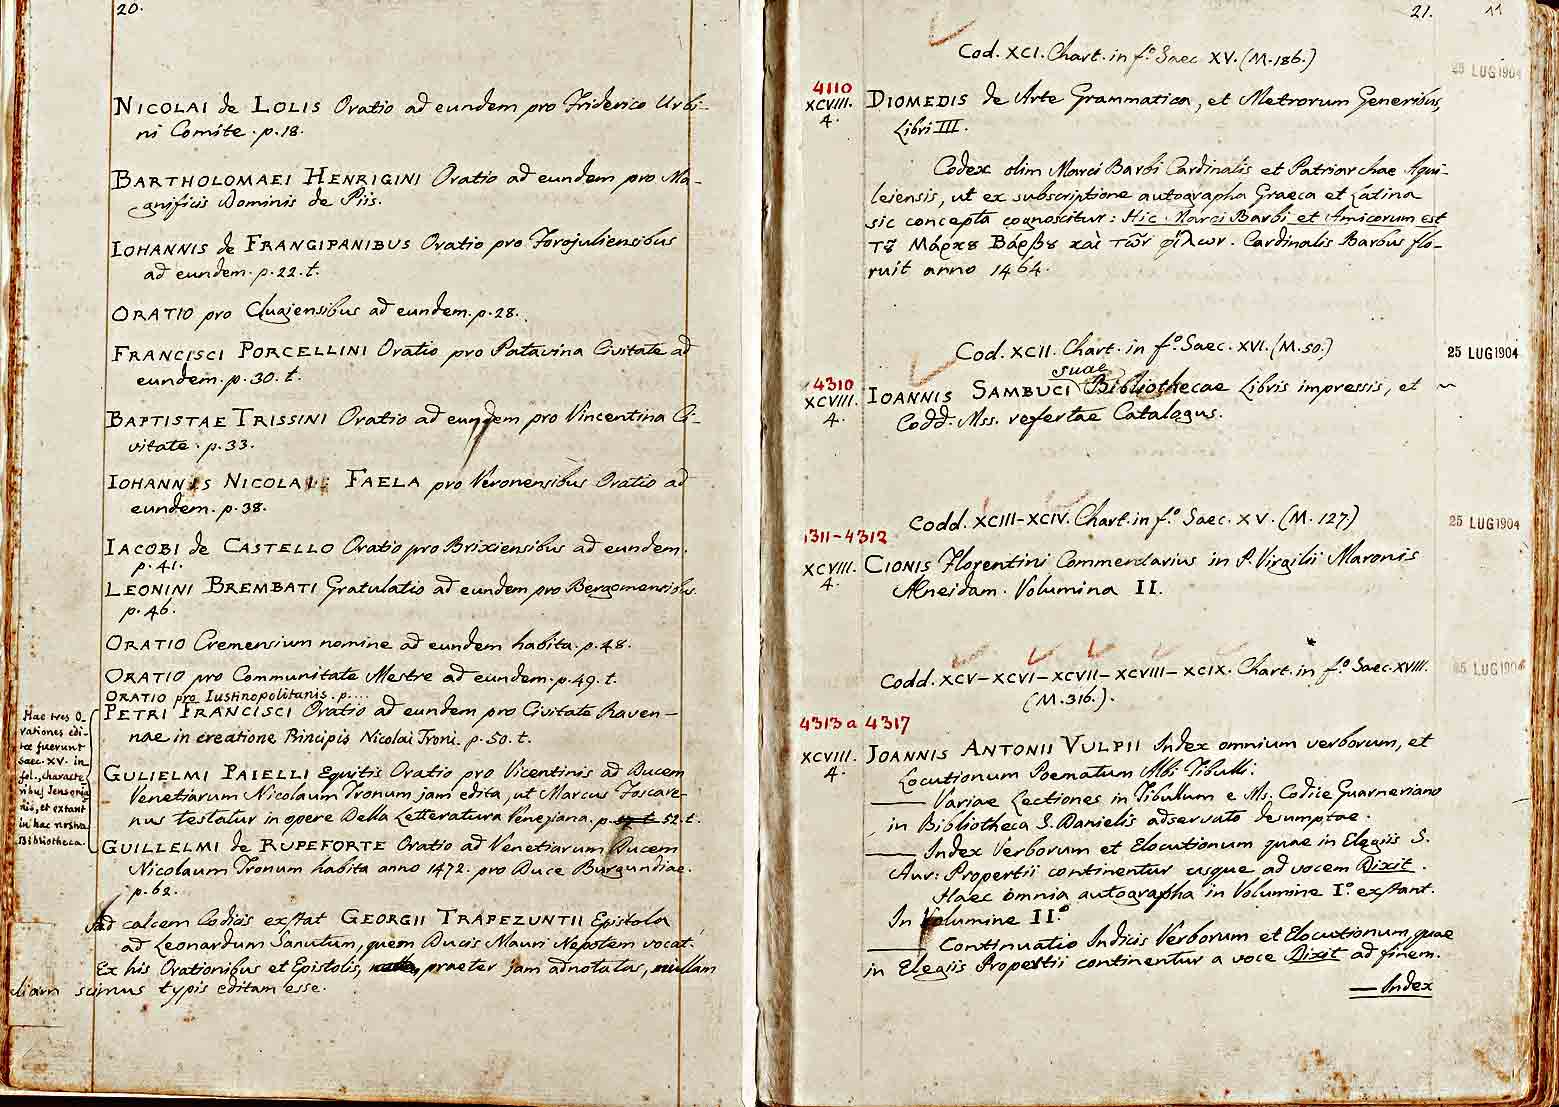 20.
NICOLAI de LOLIS Oratio ad eundem pro Friderico Urbi-
ni Comite. p. 18.
BARTHOLOMAEI HENRIGINI Oratio ad eundem pro Ma-
gnificis Dominis de Piis.
IOHANNIS de FRANGIPANIBUS Oratio pro Forojuliensibus
ad eundem. p. 22. t.
ORATIO pro Clugiensibus ad eundem. p. 28.
FRANCISCI PORCELLINI Oratio pro Patavina Civitate ad
eundem. p. 30. t.
BAPTISTAE TRISSINI Oratio ad eundem pro Vincentina Ci-
vitate. p. 33.
IOHANNIS NICOLAI FAELA pro Veronensibus Oratio ad
eundem. p. 38.
IACOBI de CASTELLO Oratio pro Brixiensibus ad eundem.
p. 41.
LEONINI BREMBATI Gratulatio ad eundem pro Bergomensibus.
p. 46.
ORATIO Cremensium nomine ad eundem habita. p. 48.
ORATIO pro Communitate Mestre ad eundem. p. 49. t.
ORATIO pro Iustinopolitanis. p....
PETRI FRANCISCI Oratio ad eundem pro Civitate Raven-
nae in creatione Principis Nicolai Troni. p. 50. t.
Hae tres O-
rationes edi-
tae fuerunt
saec. XV. in
fol., characte
ribus Jensonia
nis, et extant
in hac nostra
Bibliotheca.
GULIELMI PAIELLI Equitis Oratio pro Vicentinis ad Ducem
Venetiarum Nicolaum Tronum jam edita, ut Marcus Foscare-
nus testatur in opere Della Letteratura Veneziana. p. 52. t.
GUILLELMI de RUPEFORTE Oratio ad Venetiarum Ducem
Nicolaum Tronum habita anno 1472. pro Duce Burgundiae.
p. 62.
Ad calcem Codicis exstat GEORGII TRAPEZUNTII Epistola
ad Leonardum Sanutum, quem Ducis Mauri Nepotem vocat.
Ex his Orationibus et Epistolis, praeter jam adnotatas, nullam
aliam scimus typis editam esse.
21.
11
Cod. XCI. Chart. in f.º Saec XV. (M. 186.)
25 LUG 1904
4110
XCVIII.
4.
DIOMEDIS de Arte Grammatica, et Metrorum Generibus,
Libri III.
Codex olim Marci Barbi Cardinalis et Patriarchae Aqui-
leiensis, ut ex subscriptione autographa Graeca et Latina
sic concepta cognoscitur: Hic Marci Barbi et Amicorum est
τȣ̃ Μάρκȣ Βάρβȣ καὶ τῶν φίλων. Cardinalis Barbus flo-
ruit anno 1464.
Cod. XCII. Chart. in f.º Saec. XVI. (M. 50.)
25 LUG 1904
4310
XCVIII.
4.
suae
IOANNIS SAMBUCI Bibliothecae Libris impressis, et
Codd. Mss. refertae Catalogus.
Codd. XCIII–XCIV. Chart. in f.º Saec. XV. (M. 127)
25 LUG 1904
1311-4312
XCVIII.
4.
CIONIS Florentini Commentarius in P. Virgilii Maronis
Aeneidam. Volumina II.
Codd. XCV–XCVI–XCVII–XCVIII–XCIX. Chart. in f.º Saec. XVIII.
(M. 316.).
25 LUG 1904
4313 a 4317
XCVIII.
4.
JOANNIS ANTONII VULPII Index omnium verborum, et
Locutionum Poematum Albi Tibulli.
— Variae Lectiones in Tibullum e Ms. Codice Guarneriano
in Bibliotheca S. Danielis adservato desumptae.
— Index Verborum et Elocutionum quae in Elegiis S.
Aur: Propertii continentur usque ad vocem Dixit.
Haec omnia autographa in Volumine I.º exstant.
In Volumine II.º
— Continuatio Indicis Verborum et Elocutionum, quae
in Elegiis Propertii continentur a voce Dixit ad finem.
— Index